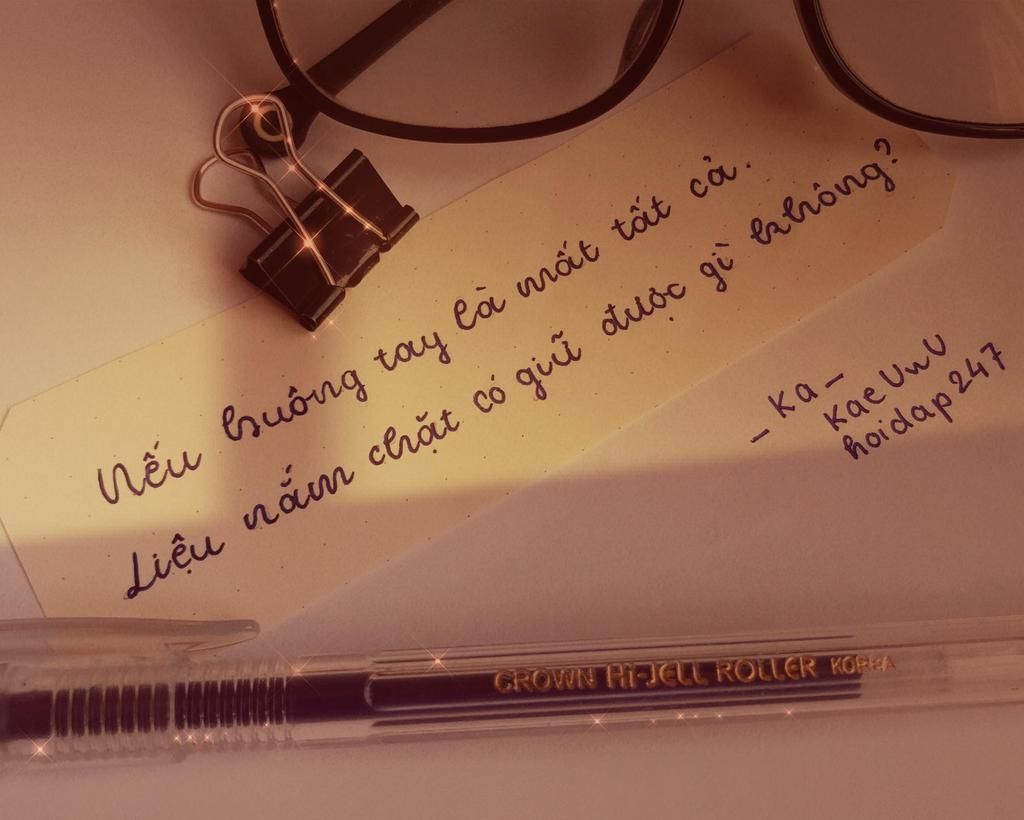 Nếu buông tay là mất tất cả.
Liệu nắm chặt có giữ được gì không?
- Ka -
KaeUnU
hoidap247
CROWN Hi-JELL ROLLER KOREA